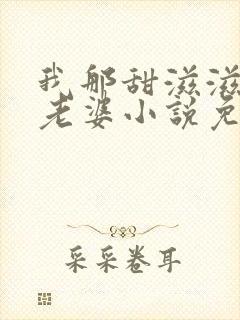 我那甜滋滋
老婆小説免
采采卷耳